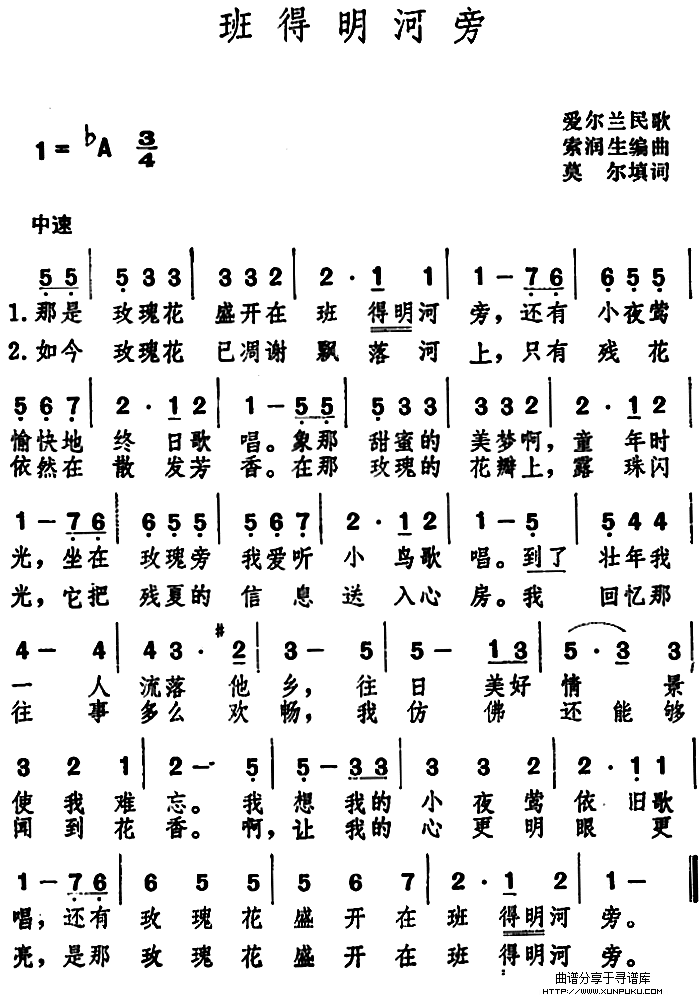 班得明河旁
爱尔兰民歌
1=♭A 3/4 索润生编曲
莫 尔填词
中速
5 5 | 5 3 3 | 3 3 2 | 2 · 1 1 | 1 — 7 6 | 6 5 5 |
1.那是 玫瑰花 盛开在 班 得明河 旁,还有 小夜莺
2.如今 玫瑰花 已凋谢 飘 落河 上,只有 残 花
5 6 7 | 2 · 1 2 | 1 — 5 5 | 5 3 3 | 3 3 2 | 2 · 1 2 |
愉快地 终 日歌 唱。象那 甜蜜的 美梦啊,童 年时
依然在 散 发芳 香。在那 玫瑰的 花瓣上,露 珠闪
1 — 7 6 | 6 5 5 | 5 6 7 | 2 · 1 2 | 1 — 5 | 5 4 4 |
光,坐在 玫瑰旁 我爱听 小 鸟歌 唱。到了 壮年我
光,它把 残夏的 信 息 送 入心 房。我 回忆那
4 — 4 | 4 3 · #2 | 3 — 5 | 5 — 1 3 | 5 · 3 3 |
一 人 流落 他 乡, 往 日 美好 情 景
往 事 多么 欢 畅, 我 仿 佛 还 能 够
3 2 1 | 2 — 5 | 5 — 3 3 | 3 3 3 | 5 5 5 | 2 · 1 1 |
使 我 难 忘。 我 想 我的 小 夜 莺 依 旧歌
闻 到 花 香。啊,让 我的 心 更 明 眼 更
1 — 7 6 | 6 5 5 | 5 6 7 | 2 · 1 2 | 1 — ‖
唱,还有 玫 瑰 花 盛 开 在 班 得明河 旁。
亮,是那 玫 瑰 花 盛 开 在 班 得明河 旁。
曲谱分享于寻谱库
HTTP://WWW.XUNPUKU.COM